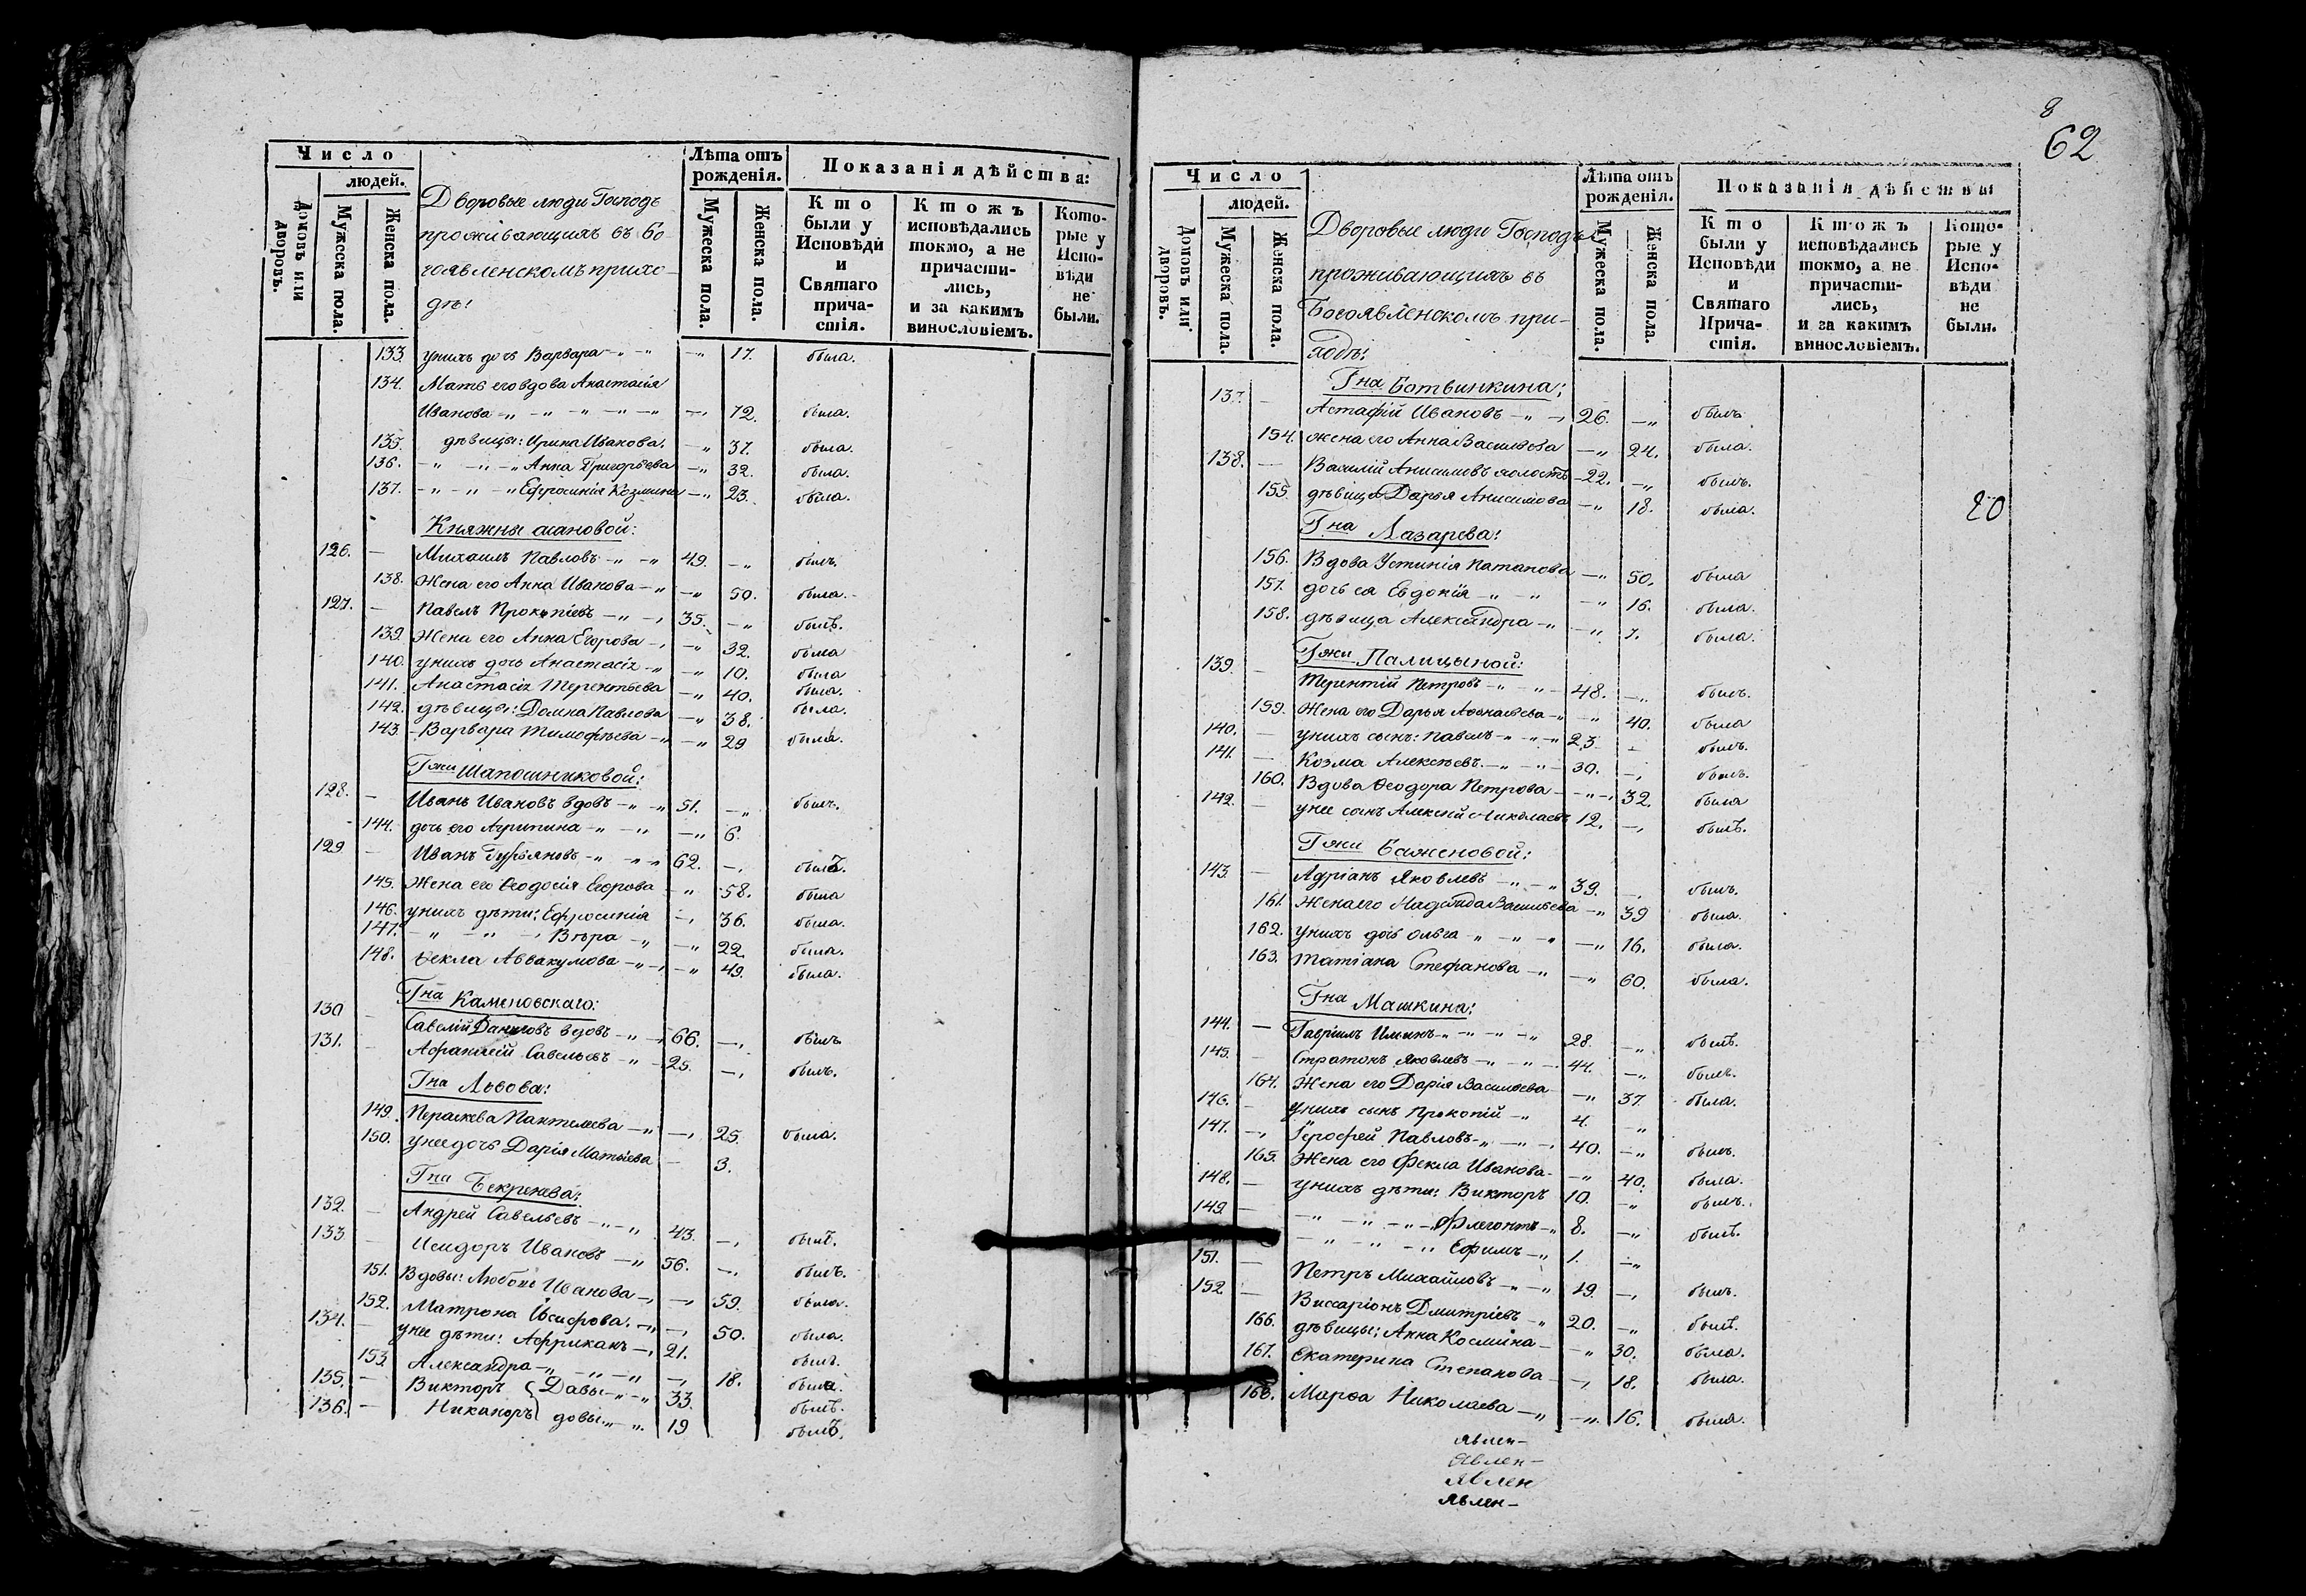 Число
людей.
Домовъ или дворовъ.
Мужеска пола.
Женска пола.
Дворовые люди Господъ
проживающихъ въ Бо-
гоявленскомъ прихо-
дѣ:
Лѣта отъ рожденія.
Мужеска пола.
Женска пола.
Показанія дѣйства:
Кто были у Исповѣди и Святаго причастія.
Ктожъ исповѣдались токмо, а не причастились, и за какимъ винословіемъ.
Которые у Исповѣди не были.
133. унихъ дочь Варвара -„ -„ -„ 17. была.
134. Мать его вдова Анастасія
Иванова -„ -„ -„ -„ -„ 72. была.
135. дѣвицы: Ирина Иванова. -„ 37. была.
136. -„ -„ -„ Анна Григорьева -„ 32. была.
137. -„ -„ -„ Ефросинія Козмина -„ 23. была.
Княжны
126. - Михаилъ Павловъ -„ -„ 49. -„ былъ.
138. Жена его Анна Иванова -„ -„ 50. была.
127. - Павелъ Прокопіевъ -„ -„ 35. -„ былъ.
139. Жена его Анна Егорова -„ -„ 32. была
140. унихъ дочь Анастасія -„ -„ 10. была
141. Анастасія Терентьева -„ 40. была.
142. дѣвицы: Домна Павлова -„ 38. была.
143. - Варвара Тимофѣева -„ -„ 29 была.
Гжи Шапошниковой:
128. - Иванъ Ивановъ вдовъ -„ -„ 51. -„ былъ.
144. дочь его Агрипина -„ -„ -„ 6.
129. - Иванъ Гурьяновъ -„ -„ -„ 62. -„ былъ.
145. Жена его Ѳеодосія Егорова -„ 58. была
146. унихъ дѣти: Ефросинія -„ 36. была.
147. -„ -„ -„ Вѣра -„ -„ 22. была.
148. Ѳекла Аввакумова -„ -„ -„ 49. была.
Гна Каменовскаго:
130 - Савелій Даниловъ вдовъ -„ -„ 66. -„ былъ
131. - Афанасій Савельевъ -„ 25. -„ былъ.
Гна Львова:
149. Пантелеева -„ -„ 25. была.
150. унее дочь Дарія Матвіева - 3.
Гна
132. - Андрей Савельевъ -„ -„ 43. -„ былъ.
133. - Исидоръ Ивановъ -„ 56. -„ былъ.
151. Вдовы: Любовь Иванова -„ -„ 59. была.
152. Матрона Іосифова. -„ -„ 50. была.
134. - унее дѣти: Африканъ -„ 21. былъ.
153. Александра -„ -„ -„ -„ 18. была.
135. - Викторъ { Давы -„ -„ 33. былъ.
136. - Никаноръ } довы. -„ -„ 19 былъ.
8
62
Число
людей.
Домовъ или дворовъ.
Мужеска пола.
Женска пола.
Дворовые люди Господъ
проживающихъ въ
Богоявленскомъ при-
ходѣ:
Лѣта отъ рожденія.
Мужеска пола.
Женска пола.
Показанія дѣйства
Кто были у Исповѣди и Святаго Причастія.
Ктожъ исповѣдались токмо, а не причастились, и за какимъ винословіемъ.
Которые у Исповѣди не были.
Гна Ботвинкина:
137. - Астафій Ивановъ -„ -„ 26. -„ былъ
154. жена его Анна Васильева -„ 24. была.
138. - Василій Анисимовъ холостъ -22. -„ былъ.
155. дѣвица Дарья Анисимова -„ 18. была.
20
Гна Лазарева:
156. Вдова Устинія Патапова -„ 50. была
157. дочь ея Евдокія -„ -„ -„ 16. была.
158. дѣвица Александра -„ -„ 7. была.
Гжи Палицыной:
139. - Терентій Петровъ -„ -„ 48. -„ былъ.
159. Жена его Дарья Аѳанасьева -„ -„ 40. была
140. - унихъ сынъ: Павелъ -„ -„ -„ 23. - былъ.
141. - Козма Алексѣевъ. -„ -„ 30. -„ былъ.
160. Вдова Ѳеодора Петрова -„ -„ 32. была
142. - унее сынъ Алексій Николаевъ 12. -„ былъ.
Гжи Баженовой:
143. - Адріанъ Яковлевъ -„ -„ 39. -„ былъ.
161. Жена его Надежда Васильева -„ 39 была.
162. унихъ дочь Ольга -„ -„ -„ -„ 16. была.
163. Татіана Стефанова -„ -„ 60. была.
Гна Машкина:
144. - Гавріилъ Ильинъ -„ -„ -„ -„ 28. -„ былъ.
145. - Стратонъ Яковлевъ -„ -„ -„ 44. -„ былъ.
164. Жена его Дарія Васильева -„ 37. была.
146. - унихъ сынъ Прокопій -„ 4. -„
147. - Іерофей Павловъ -„ -„ -„ 40. -„ былъ.
165. Жена его Фекла Иванова -„ 40. была.
148. - унихъ дѣти: Викторъ 10. -„ былъ.
149. - -„ -„ -„ Флегонтъ -„ 8. -„ былъ.
-„ -„ -„ Ефимъ -„ 1. -„
151. - Петръ Михайловъ -„ -„ 19. -„ былъ.
152 - Виссаріонъ Дмитріевъ -„ 20. -„ былъ.
166. дѣвицы: Анна Космина -„ 30. была.
167. Екатерина Степанова -„ 18. была.
168. Марѳа Николаева -„ -„ 16. была.
явлен-
явлен-
явлен
явлен-